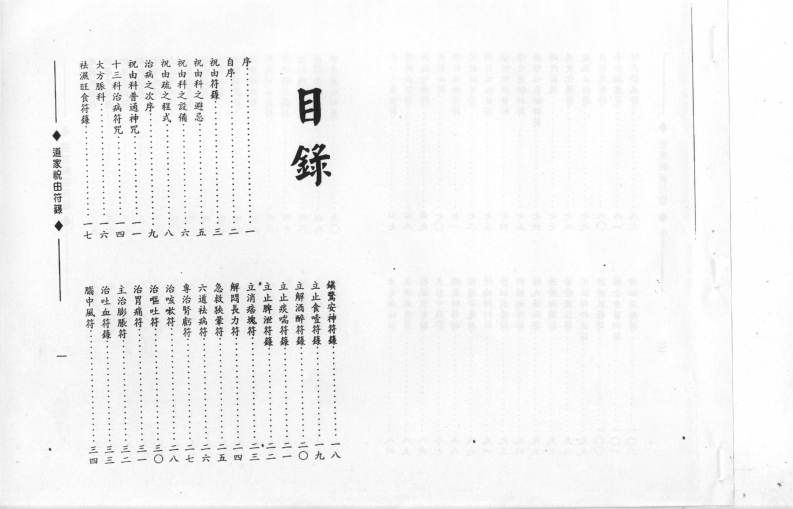 目錄
序⋯⋯一
自序⋯⋯二
祝由符籙⋯⋯三
祝由科之避忌⋯⋯五
祝由科之設備⋯⋯六
祝由疏之程式⋯⋯八
治病之次序⋯⋯九
祝由科普通神咒⋯⋯一一
十三科治病符咒⋯⋯一四
大方脈科⋯⋯一六
祛濕旺食符籙⋯⋯一七
鎮驚安神符籙⋯⋯一八
立止食噎符籙⋯⋯一九
立解酒醉符籙⋯⋯二〇
立止痰喘符籙⋯⋯二一
立止脾泄符籙⋯⋯二二
立消痞塊符⋯⋯二三
解悶長力符⋯⋯二四
急救狹暈符⋯⋯二五
六道祛病符⋯⋯二六
專治腎虧符⋯⋯二七
治咳嗽符⋯⋯二八
治嘔吐符⋯⋯三〇
治胃痛符⋯⋯三一
主治膨脹符⋯⋯三二
治吐血符籙⋯⋯三三
腦中風符⋯⋯三四
◆道家祝由符籙◆
一